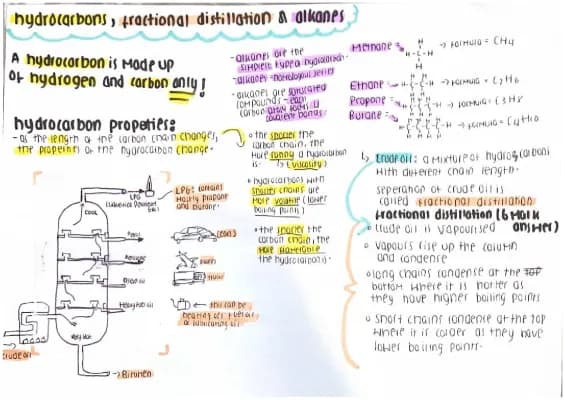 hydrocarbons, fractional distillation & alkanes
A hydrocarbon is made up
of hydrogen and carbon only!
-alkanes are the
simplest type of hydrocarbon
-alkanes = homologous series
-alkanes are saturated
compounds - each
carbon atom forms 4
covalent bonds
Methane = → Formula = CH4
H
H-C-H
H
Ethane = → Formula = C2H6
Propane = → Formula = C3H8
Butane = → Formula = C4H10
hydrocarbon properties:
-as the length of the carbon chain changes,
the properties of the hydrocarbon change.
• the shorter the
carbon chain, the
more runny a hydrocarbon
is. (viscosity)
• hydrocarbons with
shorter chains are
more volatile (lower
boiling points)
• the shorter the
carbon chain, the
more flammable
the hydrocarbon is.
↳ Crude oil: a mixture of hydrocarbons
with different chain length.
seperation of crude oil is
called fractional distillation
Fractional distillation (6 mark
answer)
• Crude oil is vapourised
• Vapours rise up the column
and condense
• long chains condense at the top
bottom where it is hotter as
they have higher boiling points
• Short chains condense at the top
where it is colder as they have
lower boiling points.
LPG
LPG: contains
mainly propane
and butane.
COOL
Petrol
(cars)
Diesel oil
Heavy fuel oil
this can be
heating oil, fuel oil
or lubricating oil
Very Hot
Crude oil
→ Bitumen